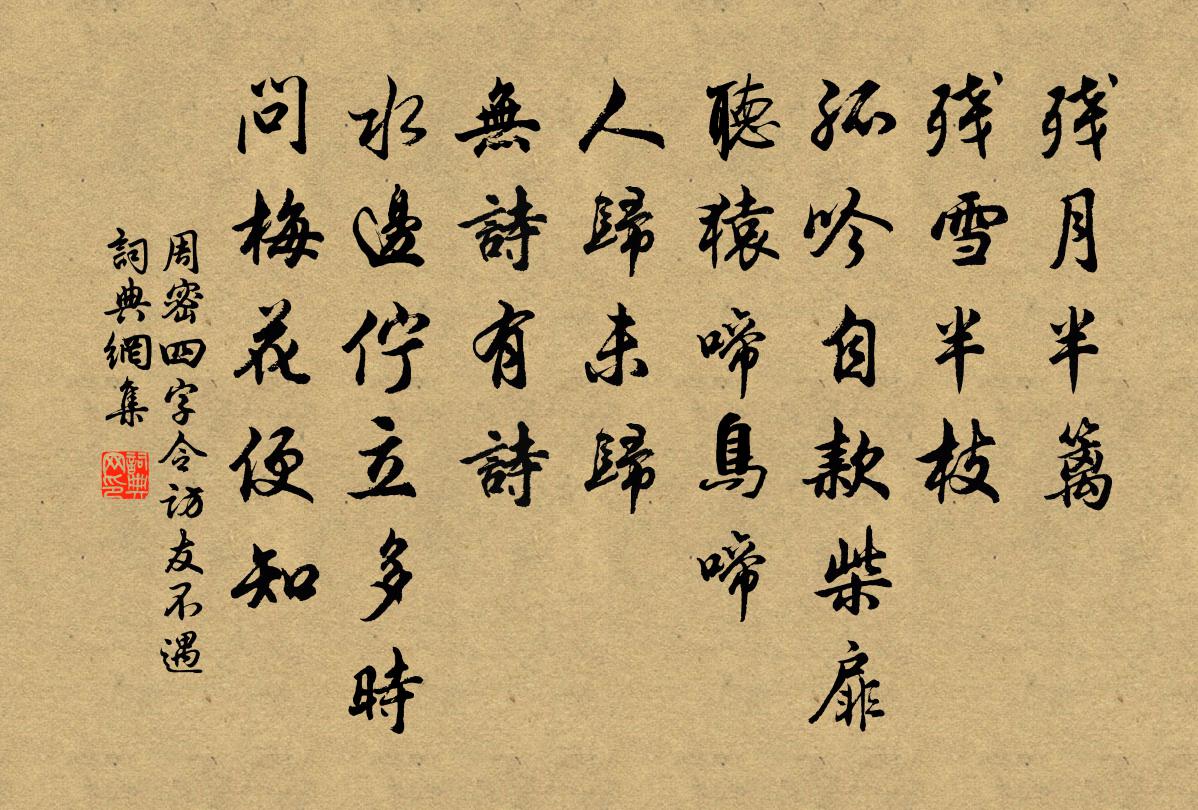 残月半篱
残雪半枝
孤吟自款柴扉
聽猿啼鳥啼
人歸未歸
無詩有詩
水邊佇立多時
問梅花便知
周密四字令访友不遇
詞典網集
詞典网印